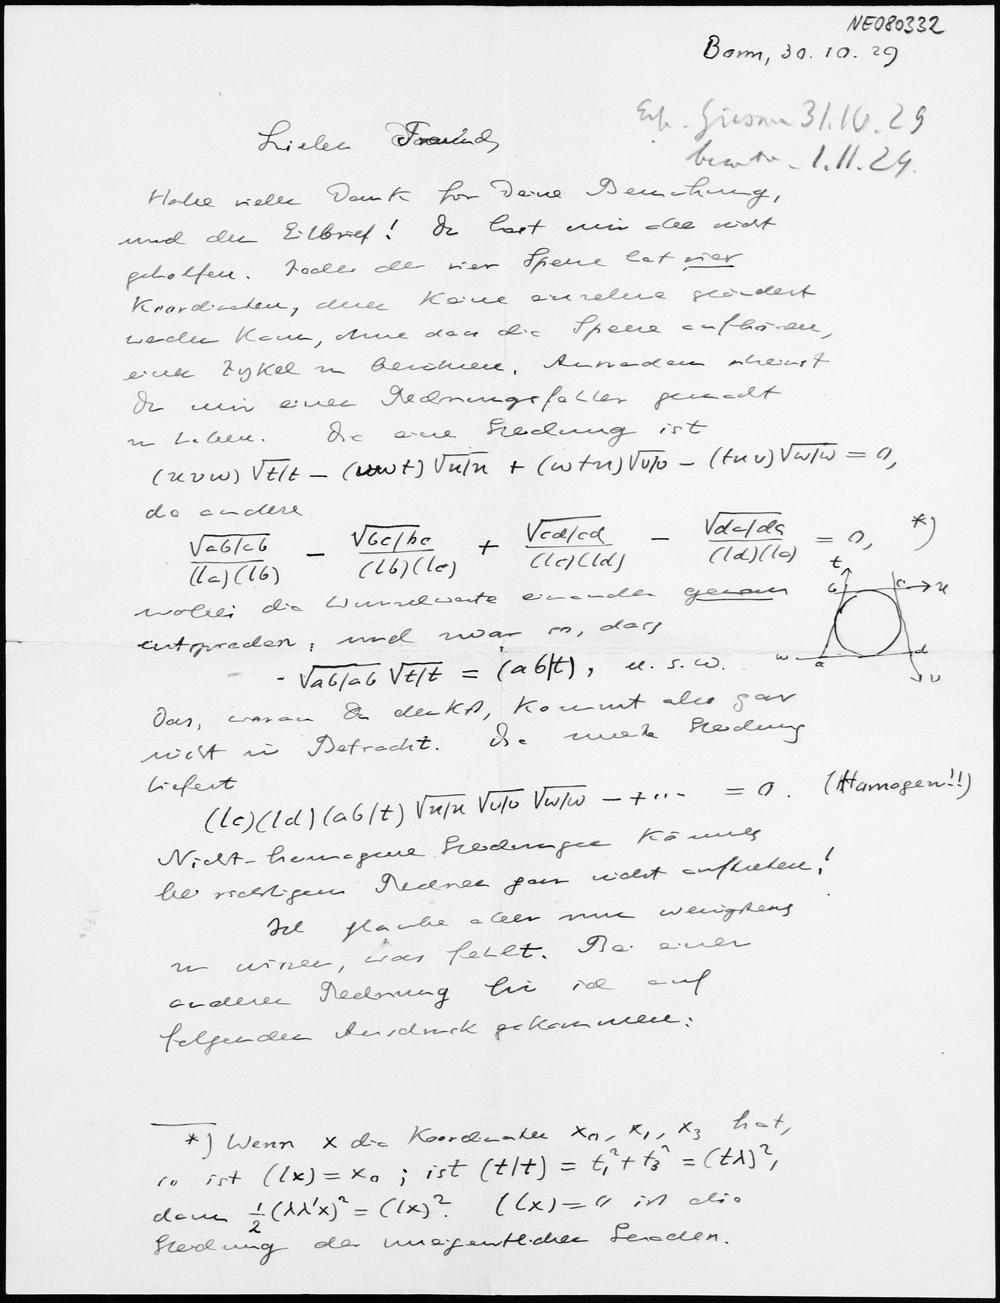 NE080332
Bonn, 30. 10. 29
31.10.29
1.11.29.
Lieber Freund,
Habe vielen Dank für Deine Bemühung,
und den Eilbrief! Du hast mir aber nicht
geholfen. Jeder der vier Speere hat vier
Koordinaten, deren keine einzelne geändert
werden kann, ohne dass die Speere aufhören,
einen Zykel zu berühren. Ausserdem scheinst
Du mir einen Rechnungsfehler gemacht
zu haben. Die eine Gleichung ist
(uvw) √t/t − (vwt) √u/u + (wtu) √v/v − (tuv) √w/w = 0,
die andere
√ab/ab / (la)(lb) − √bc/bc / (lb)(lc) + √cd/cd / (lc)(ld) − √da/da / (ld)(la) = 0, *)
t b c u w a d v
wobei die Wurzelwerte einander genau
entsprechen, und zwar so, dass
√ab/ab √t/t = (ab/t), u. s. w.
Das, woran Du denkst, kommt also gar
nicht in Betracht. Die zweite Gleichung
liefert
(lc)(ld)(ab/t) √u/u √v/v √w/w − + ··· = 0. (Homogen!!)
Nicht-homogene Gleichungen können
bei richtigem Rechnen gar nicht auftreten!
Ich glaube aber nun wenigstens
zu wissen, was fehlt. Bei einer
anderen Rechnung bin ich auf
folgenden Ausdruck gekommen:
*) Wenn x die Koordinaten x₀, x₁, x₃ hat,
so ist (lx) = x₀ ; ist (t/t) = t₁² + t₃² = (tλ)²,
dann ½ (λλ'x)² = (lx)². (lx) = 0 ist die
Gleichung der uneigentlichen Geraden.